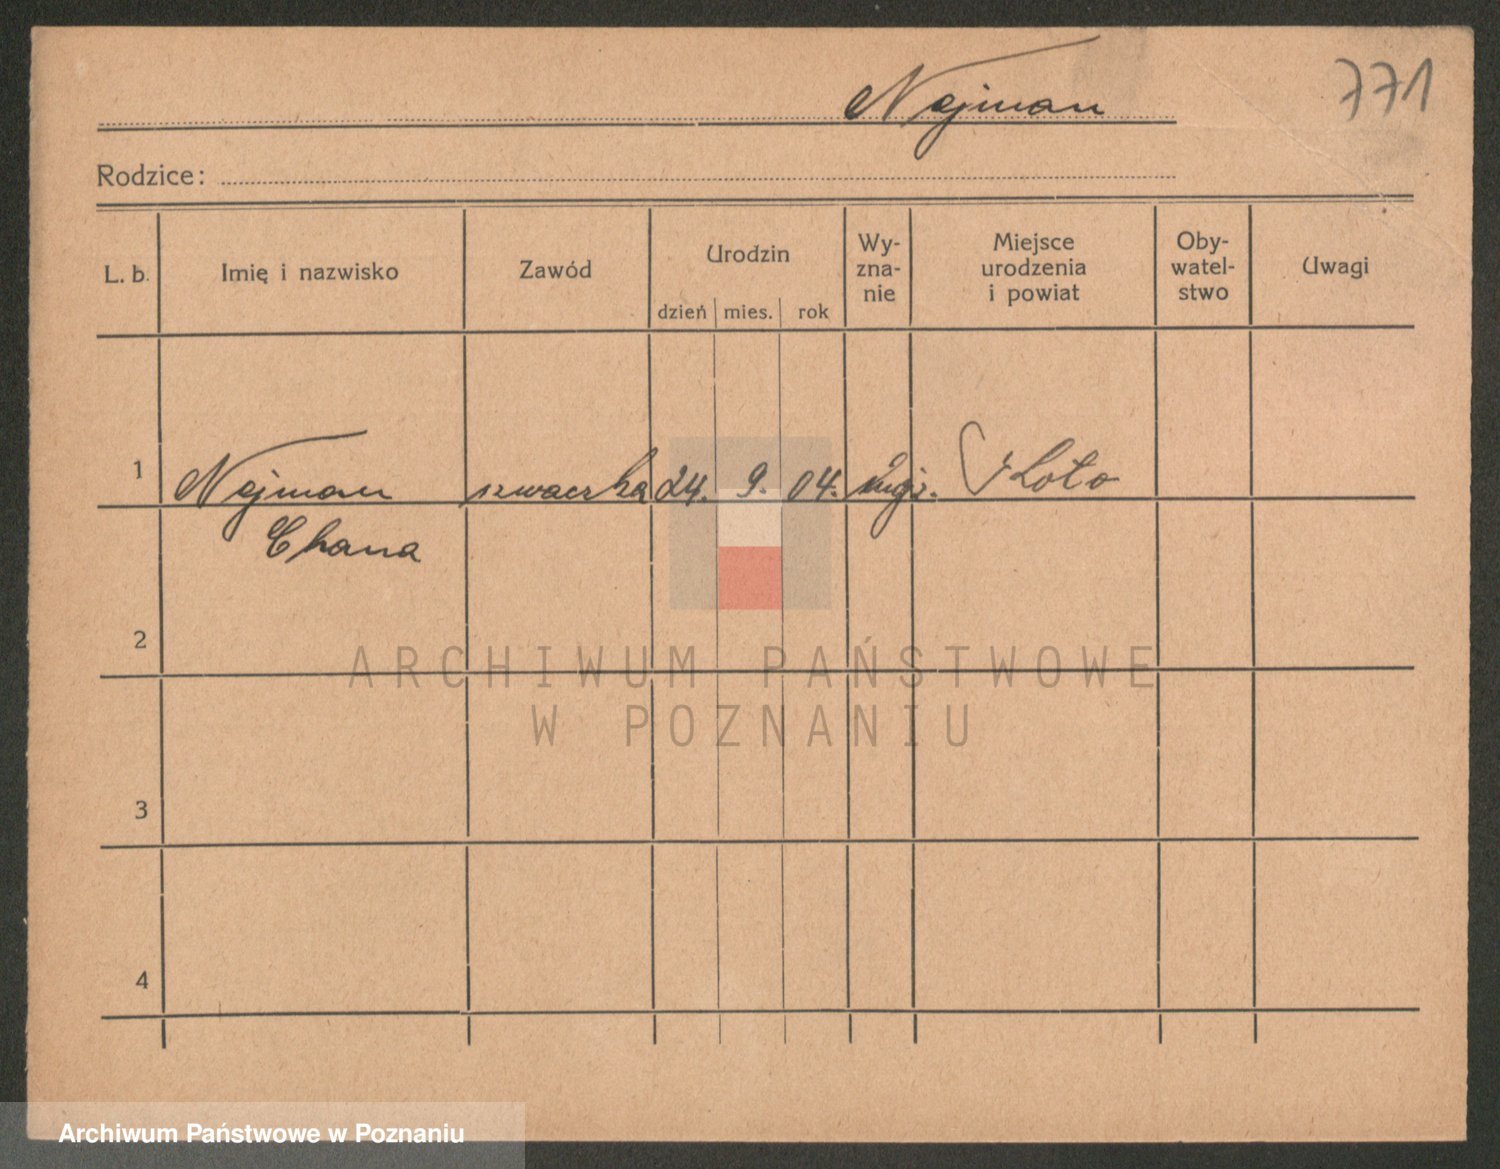 Nejman
771
Rodzice:
L. b. Imię i nazwisko Zawód Urodzin dzień mies. rok Wy-zna-nie Miejsce urodzenia i powiat Oby-watel-stwo Uwagi
1 Nejman szwaczka 24. 9. 04. Koło
Chana
2
ARCHIWUM PAŃSTWOWE
W POZNANIU
3
4
Archiwum Państwowe w Poznaniu